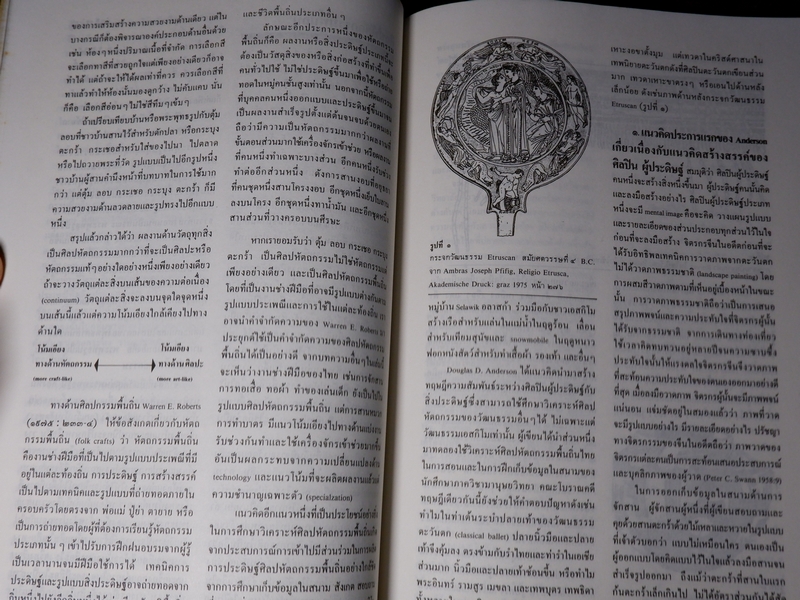 ของการเสริมสร้างความสวยงามด้านเดียว แต่ใน
บางกรณีก็ต้องพิจารณาองค์ประกอบด้านอื่นด้วย
เช่น ห้องๆหนึ่งปริมาณเนื้อที่จำกัด การเลือกสี
จะเลือกทาสีที่สวยถูกใจแต่เพียงอย่างเดียวก็อาจ
ทำได้ แต่ถ้าจะให้ได้ผลเท่าที่ควร ควรเลือกสีที่
ทาแล้วทำให้ห้องนั้นมองดูกว้าง ไม่คับแคบ นั่น
ก็คือ เลือกสีอ่อนๆไม่ใช่สีทึมๆเข้มๆ
ถ้าเปรียบเทียบบ้านหรือพระพุทธรูปกับตุ้ม
ลอบที่ชาวบ้านสานไว้สำหรับดักปลา หรือกระบุง
ตะกร้า กระเชอสำหรับใส่ของไปนา ไปตลาด
หรือไปถวายพระที่วัด รูปแบบเป็นไปอีกรูปหนึ่ง
ชาวบ้านผู้สานคำนึงหน้าที่บทบาทในการใช้มาก
กว่า แต่ตุ้ม ลอบ กระเชอ กระบุง ตะกร้า ก็มี
ความสวยงามด้านลวดลายและรูปทรงไปอีกแบบ
หนึ่ง
สรุปแล้วกล่าวได้ว่า ผลงานด้านวัตถุทุกสิ่ง
เป็นศิลปหัตถกรรมมากกว่าที่จะเป็นศิลปะหรือ
หัตถกรรมแท้ๆอย่างใดอย่างหนึ่งเพียงอย่างเดียว
ถ้าจะวางวัตถุแต่ละสิ่งบนเส้นของความต่อเนื่อง
(continuum) วัตถุแต่ละสิ่งจะลงบนจุดใดจุดหนึ่ง
บนเส้นนี้แล้วแต่ความโน้มเอียงใกล้เคียงไปทาง
ด้านใด
โน้มเอียง โน้มเอียง
ทางด้านหัตถกรรม ทางด้านศิลปะ
(more craft-like) (more art-like)
ทางด้านศิลปกรรมพื้นถิ่น Warren E. Roberts
(๑๙๗๕ : ๒๓๓-๔) ให้ข้อสังเกตเกี่ยวกับหัตถ
กรรมพื้นถิ่น (folk crafts) ว่า หัตถกรรมพื้นถิ่น
คืองานช่างฝีมือที่เป็นไปตามรูปแบบประเพณีที่มี
อยู่ในแต่ละท้องถิ่น การประดิษฐ์ การสร้างสรรค์
เป็นไปตามเทคนิคและรูปแบบที่ถ่ายทอดภายใน
ครอบครัวโดยตรงจาก พ่อแม่ ปู่ย่า ตายาย หรือ
เป็นการถ่ายทอดโดยผู้ที่ต้องการเรียนรู้หัตถกรรม
ประเภทนั้น ๆ เข้าไปรับการฝึกฝนอบรมจากผู้รู้
เป็นเวลานานจนมีฝีมือใช้การได้ เทคนิคการ
ประดิษฐ์และรูปแบบสิ่งประดิษฐ์อาจถ่ายทอดจาก
และชีวิตพื้นถิ่นประเภทอื่น ๆ
ลักษณะอีกประการหนึ่งของหัตถกรรม
พื้นถิ่นก็คือ ผลงานหรือสิ่งประดิษฐ์
ต้องเป็นวัตถุสิ่งของหรือสิ่งก่อสร้างที่ทำขึ้นเพื่อ
คนทั่วไปใช้ ไม่ใช่ประดิษฐ์ขึ้นมาเพื่อใช้
ทอดในหมู่คนชั้นสูงเท่านั้น นอกจากนี้หัตถกรรม
ที่บุคคลคนหนึ่งออกแบบและประดิษฐ์ขึ้น
เป็นผลงานสำเร็จรูปตั้งแต่ต้นจนจบด้วย
ถือว่ามีความเป็นหัตถกรรมมากกว่าผลงาน
ขั้นตอนส่วนมากใช้เครื่องจักรเข้าช่วย หรือ
ที่คนหนึ่งทำเฉพาะบางส่วน อีกคนหนึ่ง
ทำต่ออีกส่วนหนึ่ง ดังการสานงอบ
ที่คนชุดหนึ่งสานโครงงอบ อีกชุดหนึ่งเย็บใบลาน
ลงบนโครง อีกชุดหนึ่งทาน้ำมัน และอีกชุดหนึ่ง
สานส่วนที่วางครอบบนศีรษะ
หากเรายอมรับว่า ตุ้ม ลอบ กระเชอ กระบุง
ตะกร้า เป็นศิลปหัตถกรรมไม่ใช่หัตถกรรม
เพียงอย่างเดียว และเป็นศิลปหัตถกรรมพื้นถิ่น
โดยที่เป็นงานช่างฝีมือที่อาจมีรูปแบบต่างกันตาม
รูปแบบประเพณีและการใช้ในแต่ละท้องถิ่น เรา
อาจนำคำจำกัดความของ Warren E. Roberts มา
ประยุกต์ใช้เป็นคำจำกัดความของศิลปหัตถกรรม
พื้นถิ่นได้เป็นอย่างดี จากบทความอื่นๆในเล่มนี้
จะเห็นว่างานช่างฝีมือของไทย เช่นการจักสาน
การทอเสื่อ ทอผ้า ทำของเล่นเด็ก ยังเป็นไปใน
รูปแบบศิลปหัตถกรรมพื้นถิ่น แต่การสานหมวก
การทำบาตร มีแนวโน้มเอียงไปทางด้านแบ่งงาน
รับช่วงกันทำและใช้เครื่องจักรเข้าช่วยมากขึ้น
อันเป็นผลกระทบจากความเปลี่ยนแปลงด้าน
technology และแนวโน้มที่จะผลิตผลงานแล้วแต่
ความชำนาญเฉพาะตัว (specialization)
แนวคิดอีกแนวหนึ่งที่เป็นประโยชน์อย่างยิ่ง
ในการศึกษาวิเคราะห์ศิลปหัตถกรรมพื้นถิ่น
จากประสบการณ์การเข้าไปมีส่วนร่วมในการผลิต
การศึกษาศิลปหัตถกรรมพื้นถิ่นอย่างใกล้ชิด
จากการศึกษาเก็บข้อมูลในสนาม สังเกต สอบถาม
รูปที่ ๑
กระจกวัฒนธรรม Etruscan สมัยศตวรรษที่ ๔ B.C.
จาก Ambras Joseph Pfifig, Religio Etrusca,
Akademische Druck: graz 1975 หน้า ๒๗๖
หมู่บ้าน Selawik อลาสก้า ร่วมมือกับชาวเอสกิโม
สร้างเรือสำหรับแล่นในแม่น้ำในฤดูร้อน เลื่อน
สำหรับเทียมสุนัขและ snowmobile ในฤดูหนาว
ฟอกหนังสัตว์สำหรับทำเสื้อผ้า รองเท้า และอื่นๆ
Douglas D. Anderson ได้แนวคิดนำมาสร้าง
ทฤษฎีความสัมพันธ์ระหว่างศิลปินผู้ประดิษฐ์กับ
สิ่งประดิษฐ์ซึ่งสามารถใช้ศึกษาวิเคราะห์ศิลปหัตถกรรม
ของวัฒนธรรมอื่นๆได้ ไม่เฉพาะแต่
วัฒนธรรมเอสกิโมเท่านั้น ผู้เขียนได้นำส่วนหนึ่ง
มาทดลองใช้วิเคราะห์ศิลปหัตถกรรมพื้นถิ่นไทย
ในการสอนและในการฝึกเก็บข้อมูลในสนามของ
นักศึกษาภาควิชามานุษยวิทยา คณะโบราณคดี
ทฤษฎีเดียวกันนี้ยังช่วยให้คำตอบปัญหาดังเช่น
ทำไมในท่าเต้นระบำปลายเท้าของวัฒนธรรม
ตะวันตก (classical ballet) ปลายนิ้วมือและปลาย
เท้าจึงคุ้มลง ตรงข้ามกับรำไทยและท่ารำในเอเชีย
ส่วนมาก นิ้วมือและปลายเท้าช้อนขึ้น หรือทำไม
พระอินทร์ รามสูร เมขลา และเทพบุตร เทพธิดา
เหาะงอขาตั้งนุ่ม แต่เทวดาในคริสต์ศาสนาใน
เทพนิยายตะวันตกดังที่ศิลปินตะวันตกเขียนส่วน
มาก เทวดาเหาะขาตรงๆ หรือเอนไปด้านหลัง
เล็กน้อย ดังเช่นภาพด้านหลังกระจกวัฒนธรรม
Etruscan (รูปที่ ๑)
๑. แนวคิดประการแรกของ Anderson
เกี่ยวเนื่องกับแนวคิดสร้างสรรค์ของ
ศิลปิน ผู้ประดิษฐ์ สมมุติว่า ศิลปินผู้ประดิษฐ์
คนหนึ่งจะสร้างสิ่งหนึ่งขึ้นมา ผู้ประดิษฐ์คนนั้นคิด
และลงมือสร้างอย่างไร ศิลปินผู้ประดิษฐ์ประเภท
หนึ่งจะมี mental image คือจะคิด วางแผน รูปแบบ
และรายละเอียดของส่วนประกอบทุกส่วนไว้ในใจ
ก่อนที่จะลงมือสร้าง จิตรกรจีนในอดีตก่อนที่จะ
ได้รับอิทธิพลเทคนิคการวาดภาพจากตะวันตก
ไม่ได้วาดภาพธรรมชาติ (landscape painting) โดย
การผสมสีวาดภาพตามที่เห็นอยู่เบื้องหน้าในขณะ
นั้น การวาดภาพธรรมชาติถือว่าเป็นการเสนอ
สรุปภาพพจน์และความประทับใจที่จิตรกรผู้นั้น
ได้รับจากธรรมชาติ จากการเดินทางท่องเที่ยว
ใช้เวลาคิดทบทวนอยู่หลายปีจนความซาบซึ้ง
ประทับใจนั้นให้แรงดลใจจิตรกรจีนจึงวาดภาพ
ที่สะท้อนความประทับใจของตนเองออกมาอย่างดี
ที่สุด เมื่อลงมือวาดภาพ จิตรกรผู้นั้นจะมีภาพพจน์
แน่นอน แจ่มชัดอยู่ในสมองแล้วว่า ภาพที่วาด
จะมีรูปแบบอย่างไร มีรายละเอียดอย่างไร ปรัชญา
ทางจิตรกรรมของจีนในอดีตถือว่า ภาพวาดของ
จิตรกรแต่ละคนเป็นการสะท้อนเสนอประสบการณ์
และบุคลิกภาพของผู้วาด (Peter C. Swann 1958:9)
ในการออกเก็บข้อมูลในสนามด้านการ
จักสาน ผู้จักสานผู้หนึ่งที่ผู้เขียนสอบถามและ
คุยด้วยสานตะกร้าด้วยไม้เหลาและหวายในรูปแบบ
ที่เจ้าตัวบอกว่า แบบไม่เหมือนใคร ตนเองเป็น
ผู้ออกแบบโดยคิดแบบไว้ในใจแล้วลงมือสานจน
สำเร็จรูปออกมา ถึงแม้ว่าตะกร้าที่สานในแรก